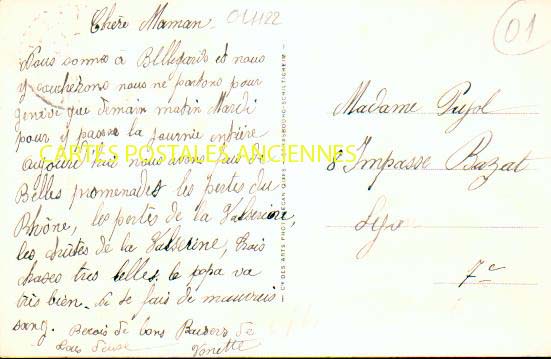 Chère Maman
041122
01
Nous sommes à Bellegarde et nous
y coucherons nous ne partons pour
genève que demain matin Mardi
pour y passer la journée entière
aujourd'hui nous avons fais de
Belles promenades les pertes du
Rhône, les pertes de la Valserine,
les chûtes de la Valserine, trois
choses très belles. le papa va
très bien. te fais de mauvais
sang. Recois de bons Baisers de
Vonette
CARTES POSTALES ANCIENNES
Madame Pujol
8 Impasse Bazat
Lyon
7e